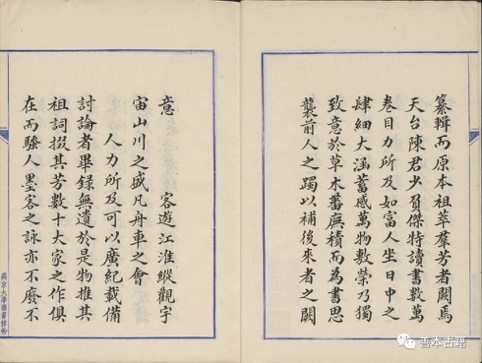 纂輯而原本祖萃羣芳者闕焉
天台陳君少負傑特讀書數萬
卷目力所及如富人坐日中之
肆細大涵蓄感萬物敷榮乃獨
致意於草木蕃廡積而為書思
襲前人之躅以補後來者之闕
意　　　　客遊江淮縱觀宇
宙山川之盛凡舟車之會
人力所及可以廣紀載備
討論者畢錄無遺於是物推其
祖詞掇其芳數十大家之作俱
在而騷人墨客之詠亦不廢不
燕京大學圖書館鈔
善本古籍